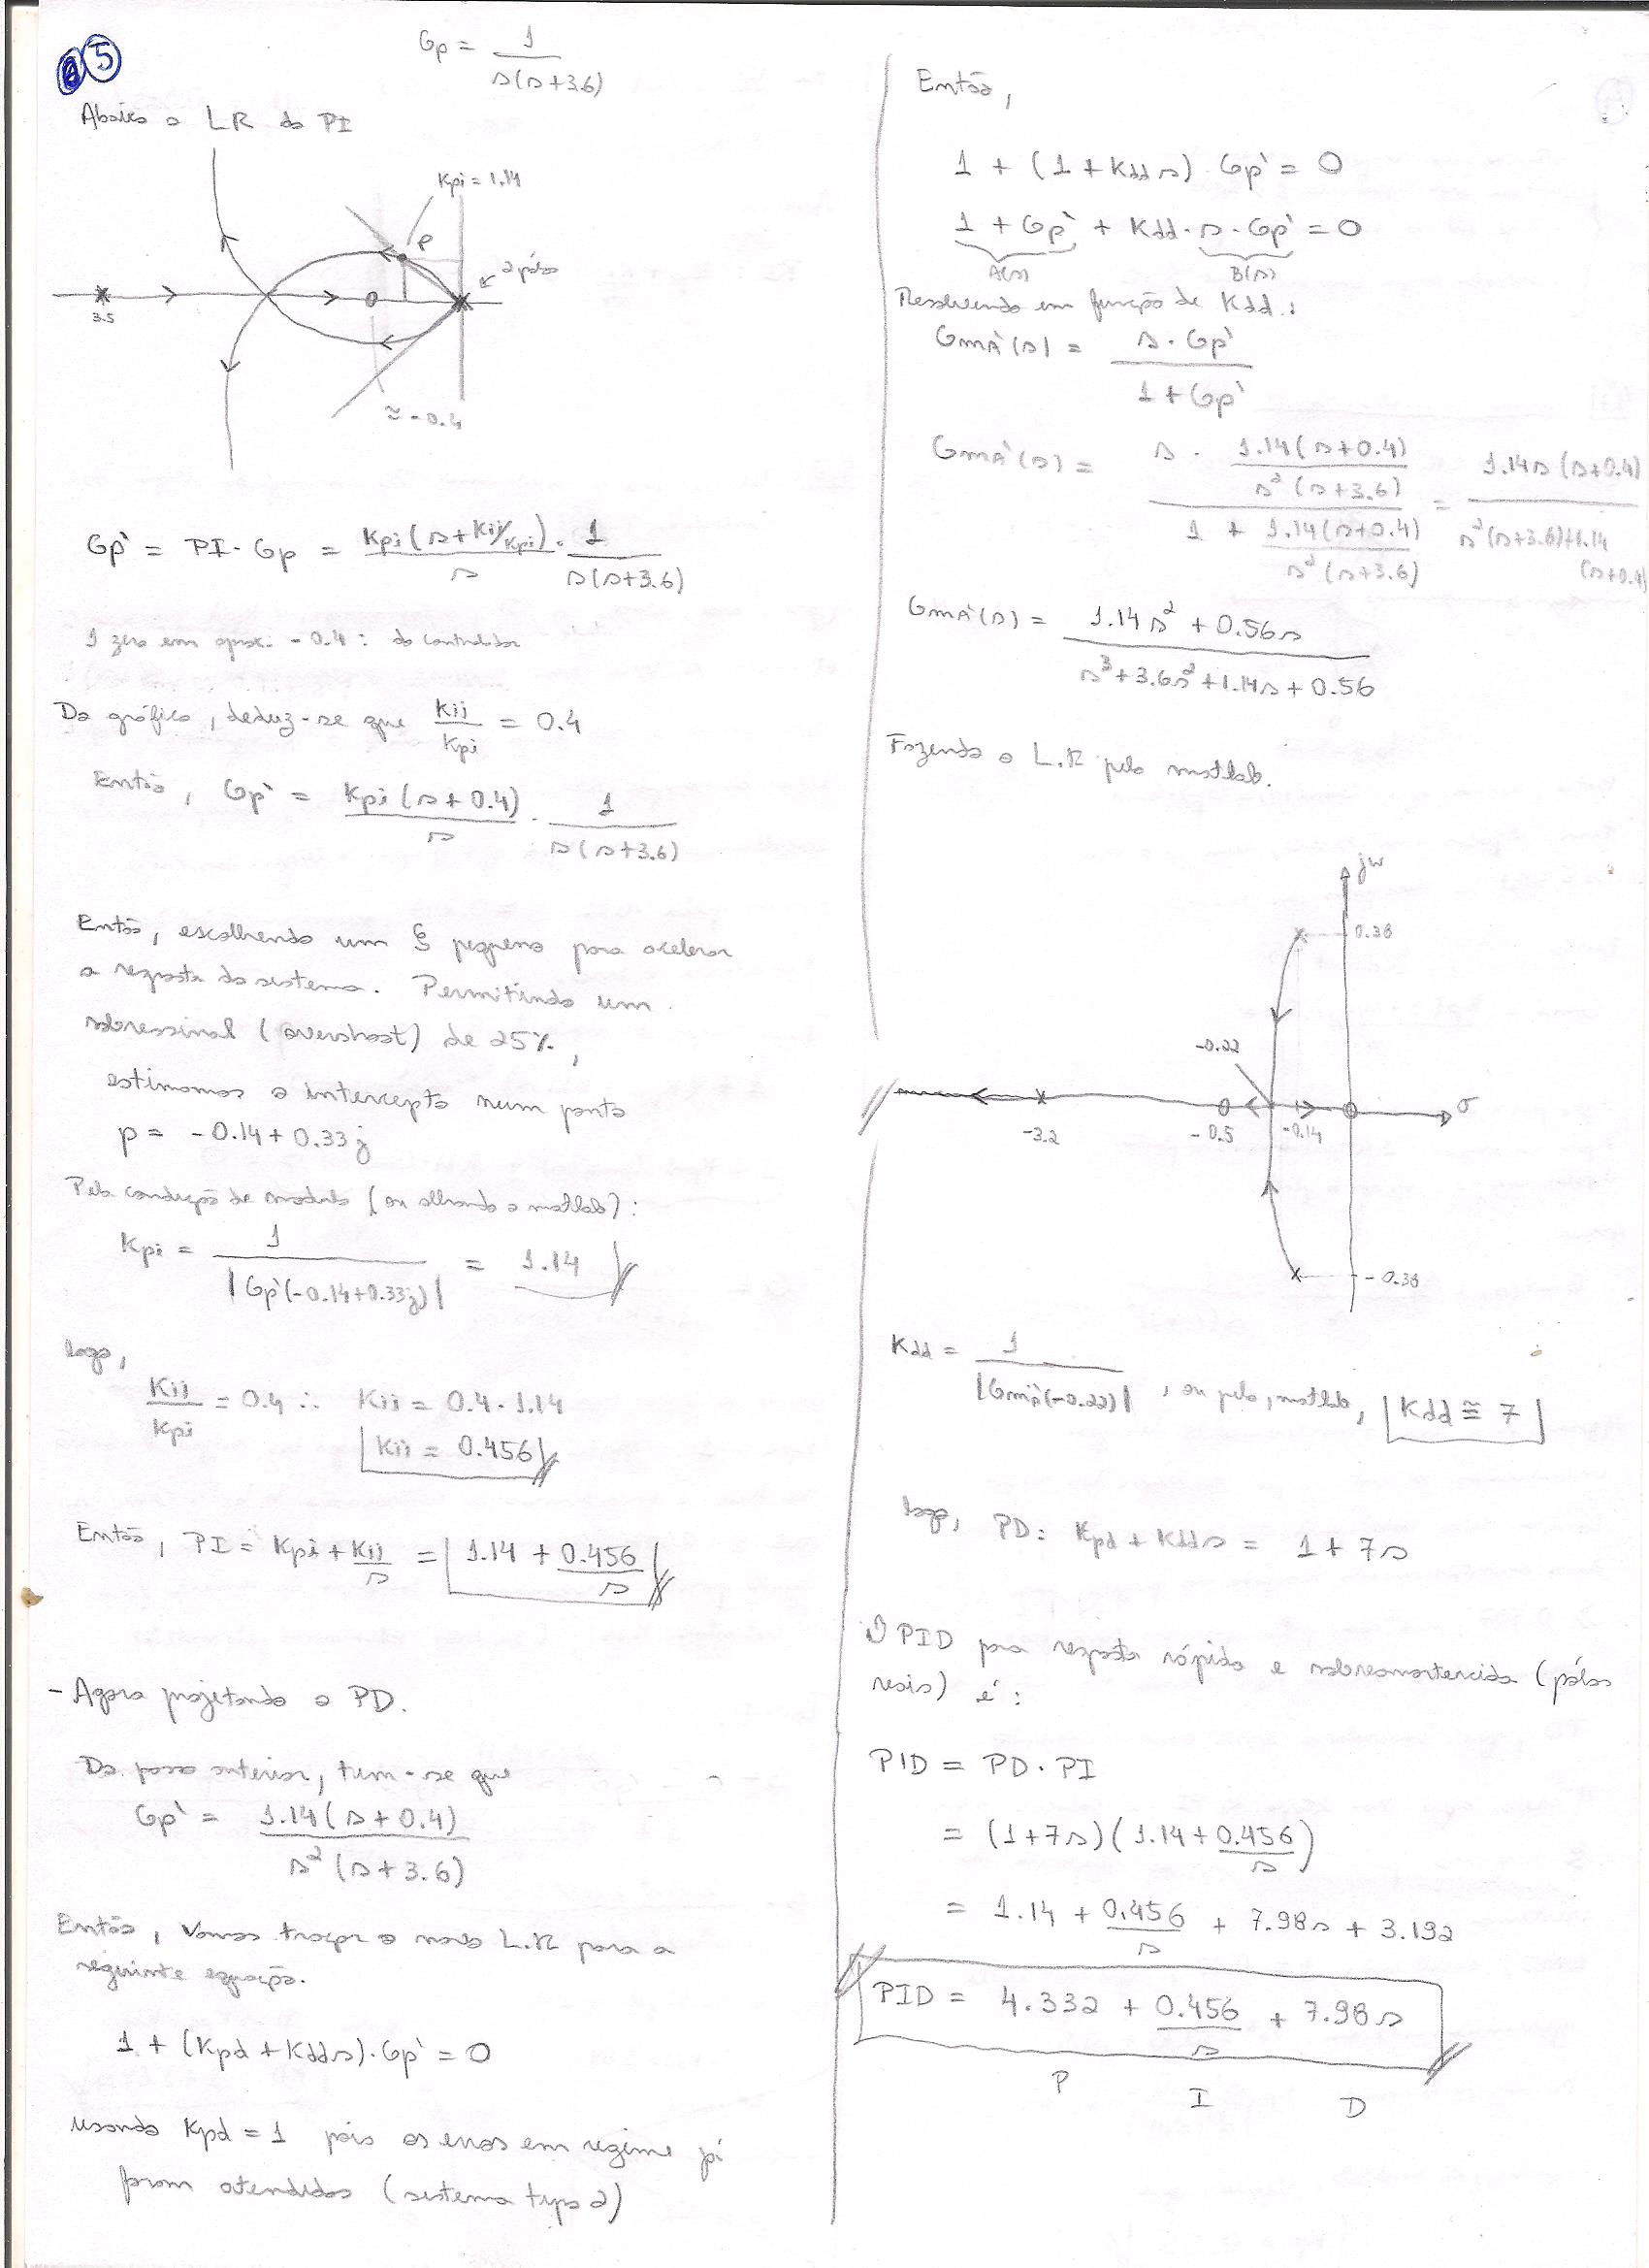 5
Gp = 1 / s(s+3.6)
Abaixo o LR do PI
Kpi = 1.14
P
2 pólos
3.5
≅ -0.4
Gp' = PI · Gp = Kpi(s + Kii/Kpi) / s · 1 / s(s+3.6)
1 zero em aprox. -0.4 : do controlador
Do gráfico, deduz-se que Kii / Kpi = 0.4
Então, Gp' = Kpi(s+0.4) / s · 1 / s(s+3.6)
Então, escolhendo um ξ pequeno para acelerar
a resposta do sistema. Permitindo um
sobressinal (overshoot) de 25%,
estimamos o intercepto num ponto
p = -0.14+0.33j
Pela condição de modulo (ou olhando o matlab):
Kpi = 1 / |Gp'(-0.14+0.33j)| = 1.14
logo,
Kii / Kpi = 0.4 ∴ Kii = 0.4 · 1.14
Kii = 0.456
Então, PI = Kpi + Kii / s = 1.14 + 0.456 / s
- Agora projetando o PD.
Do passo anterior, tem-se que
Gp' = 1.14(s+0.4) / s²(s+3.6)
Então, vamos traçar o novo L.R para a
seguinte equação.
1 + (Kpd + Kdd s) · Gp' = 0
usando Kpd = 1 pois os erros em regime já
foram atendidos (sistema tipo 2)
Então,
1 + (1 + Kdd s) Gp' = 0
1 + Gp' + Kdd · s · Gp' = 0
A(s) B(s)
Resolvendo em função de Kdd :
GmA'(s) = s · Gp' / 1 + Gp'
GmA'(s) = s · 1.14(s+0.4) / s²(s+3.6) / 1 + 1.14(s+0.4) / s²(s+3.6) = 1.14s(s+0.4) / s²(s+3.6)+1.14(s+0.4)
GmA'(s) = 1.14s² + 0.56s / s³+3.6s²+1.14s+0.56
Fazendo o L.R pelo matlab.
jw
0.38
-0.22
σ
-3.2
-0.5
-0.14
-0.38
Kdd = 1 / |GmA'(-0.22)| , ou pelo, matlab, Kdd ≅ 7
logo, PD: Kpd + Kdd s = 1 + 7s
O PID para resposta rápida e sobreamortecida (pólos
reais) é :
PID = PD · PI
= (1+7s)(1.14 + 0.456 / s)
= 1.14 + 0.456 / s + 7.98s + 3.192
PID = 4.332 + 0.456 / s + 7.98s
P I D